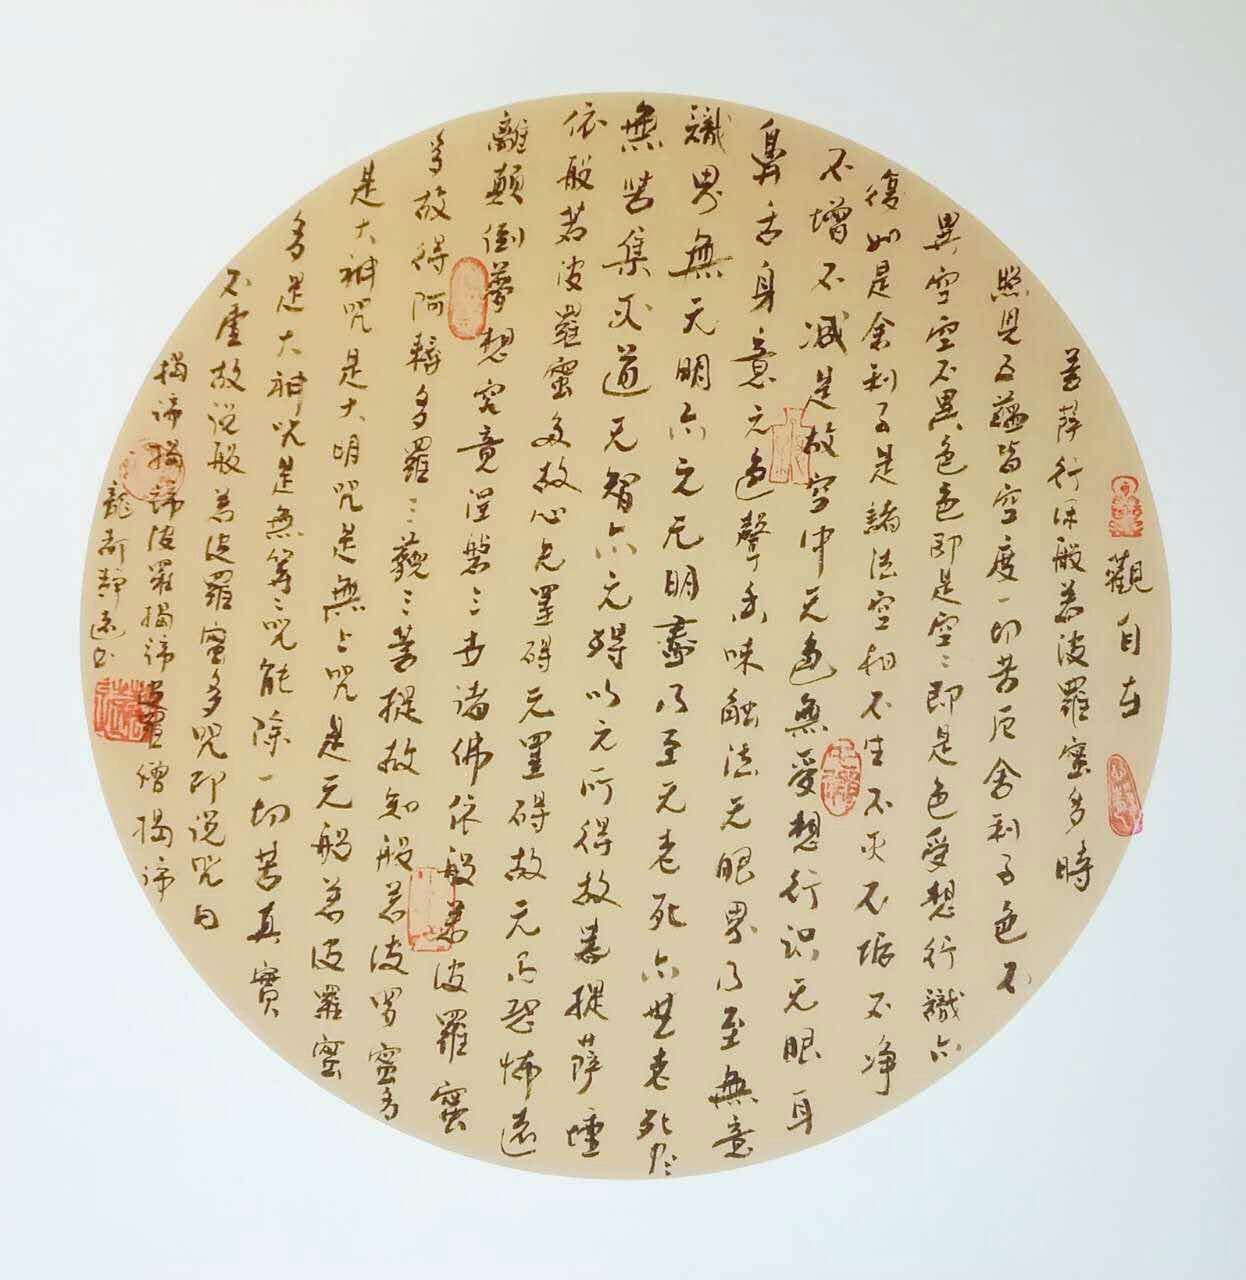 觀自在
菩薩行深般若波羅蜜多時
照見五蘊皆空度一切苦厄舍利子色不
異空空不異色色即是空〻即是色受想行識亦
復如是舍利子是諸法空相不生不灭不垢不净
不增不減是故空中无色無受想行识无眼耳
鼻舌身意无色聲香味觸法无眼界乃至無意
識界無无明亦无无明盡乃至无老死亦無老死尽
無苦集灭道无智亦无得以无所得故菩提薩埵
依般若波羅蜜多故心无罣碍无罣碍故无有恐怖遠
離顛倒夢想究竟涅槃三世诸佛依般若波羅蜜
多故得阿耨多羅三藐三菩提故知般若波罗蜜多
是大神咒是大明咒是無上咒是无般若波羅蜜
多是大神咒是無等〻咒能除一切苦真實
不虛故说般若波羅蜜多咒即说咒曰
揭谛揭谛波羅揭谛波羅僧揭谛
龍靜遠书